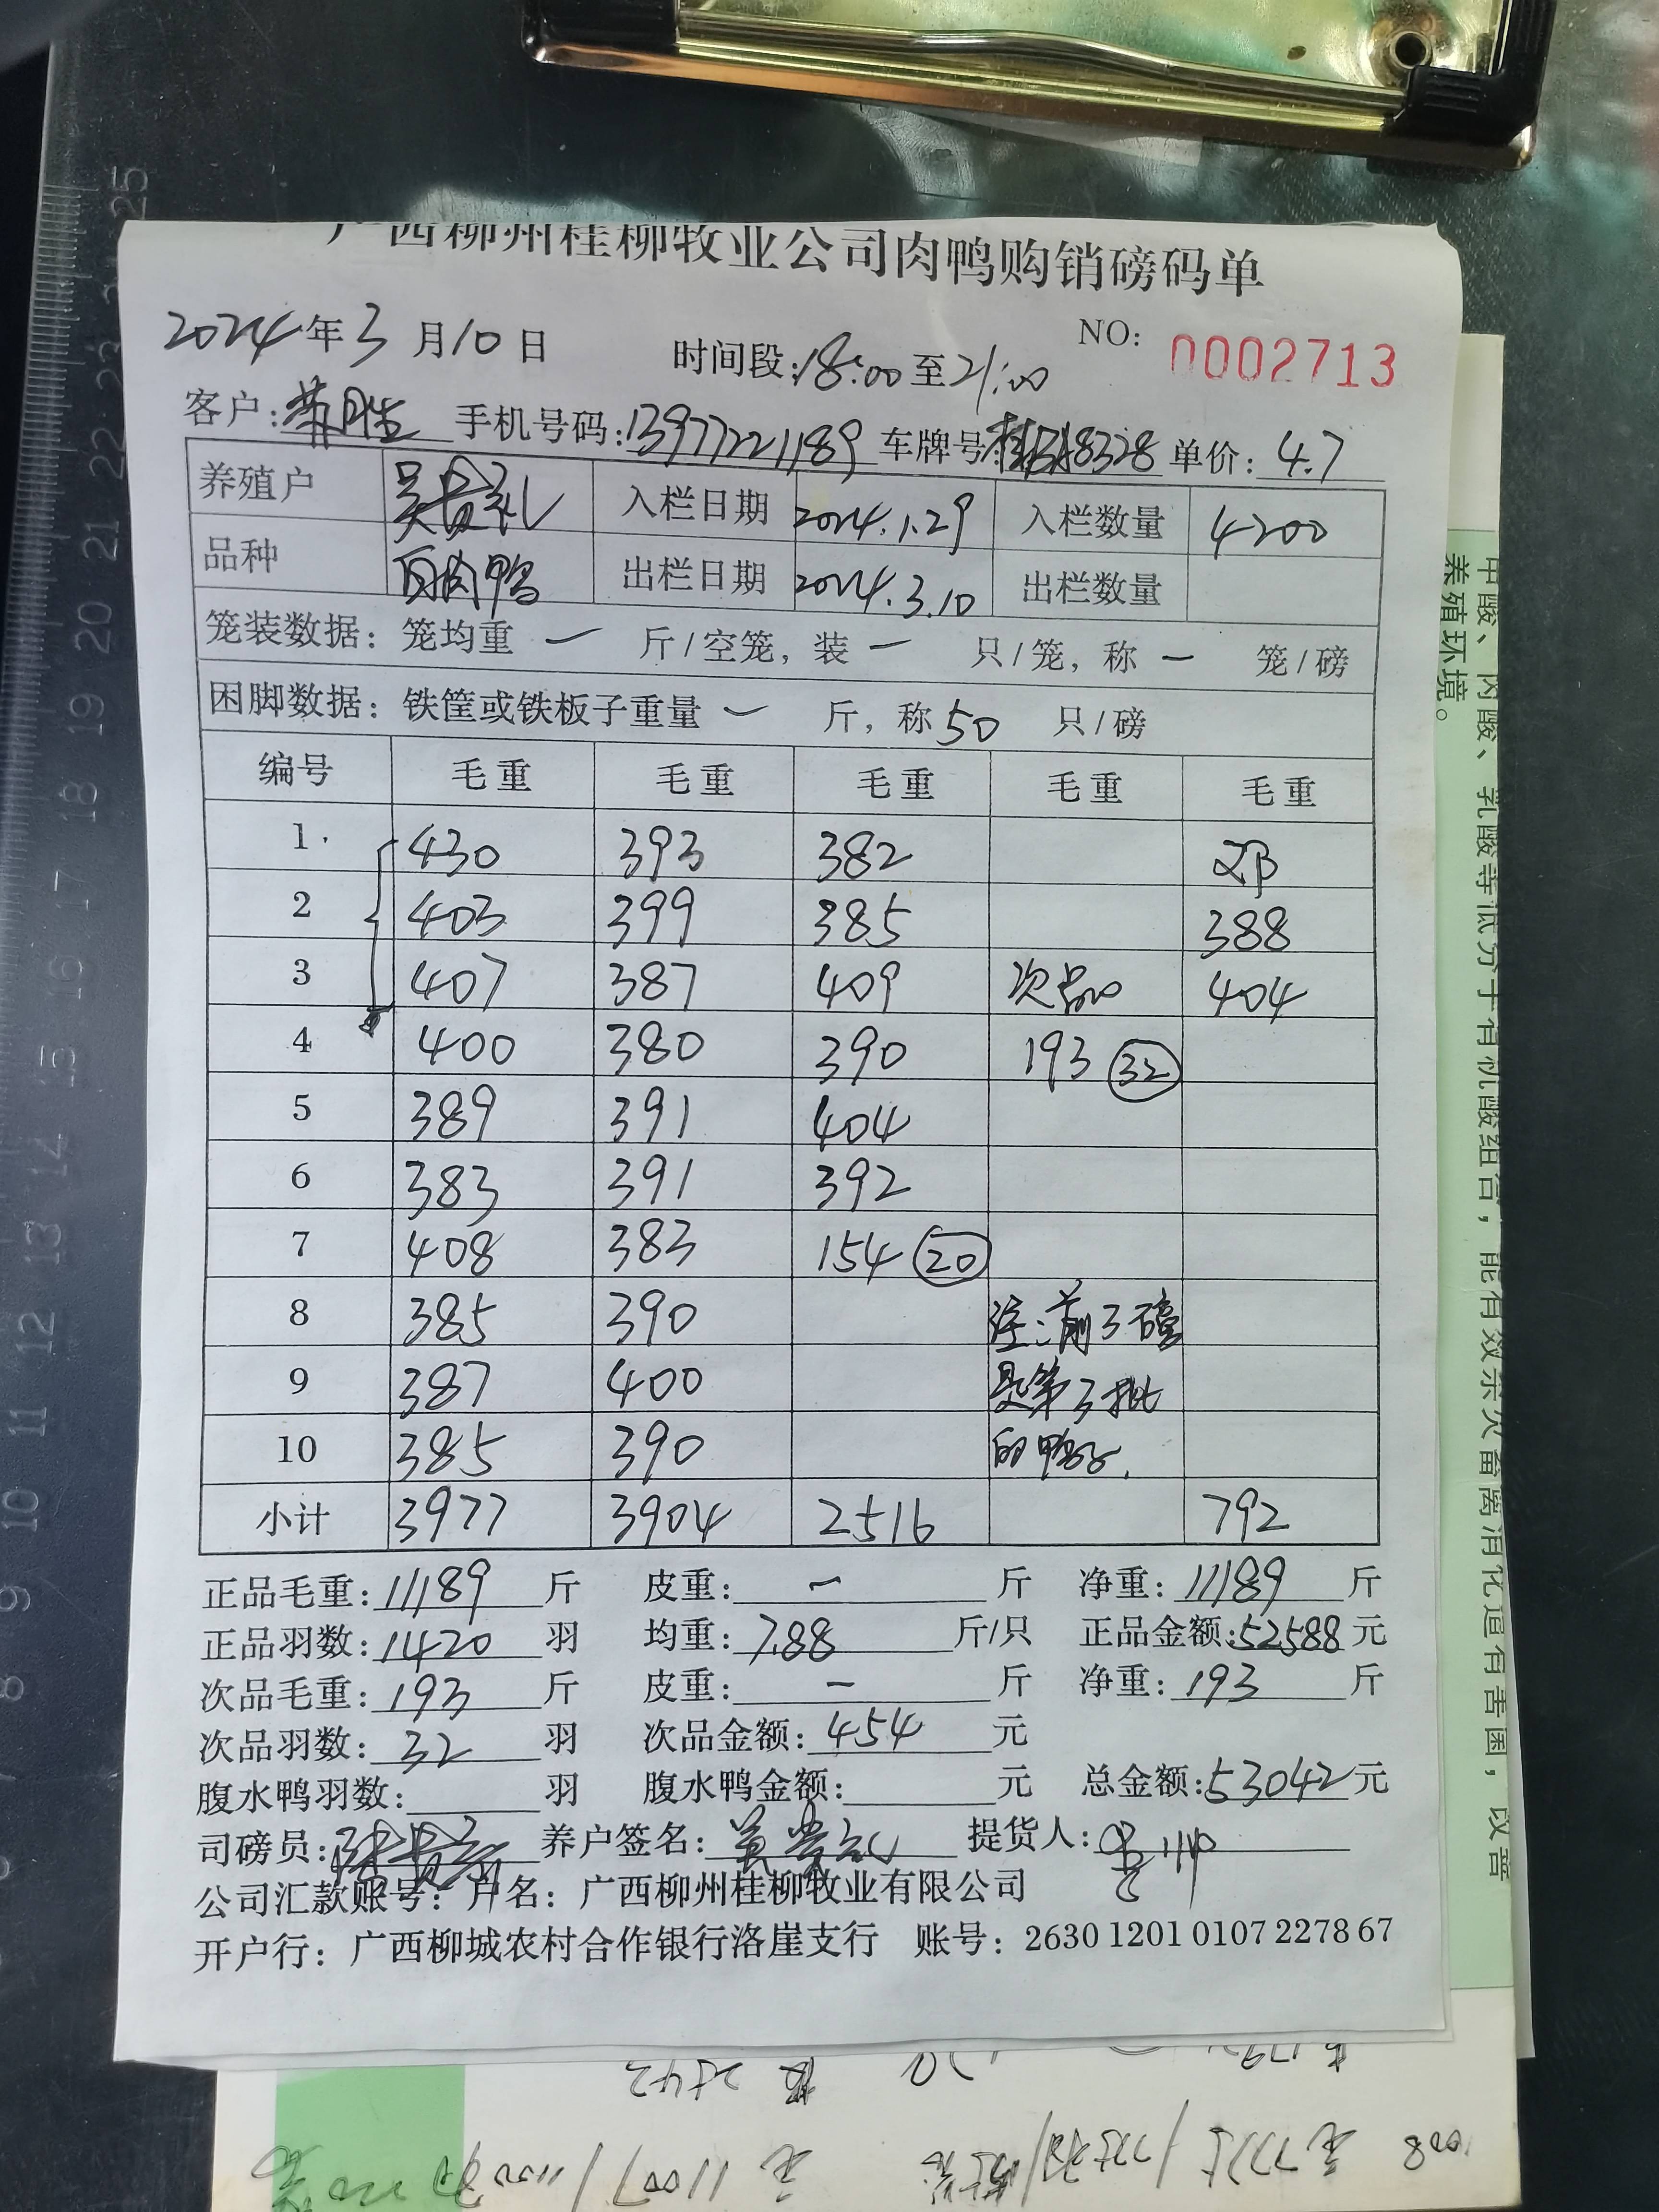 广西柳州桂柳牧业公司肉鸭购销磅码单
2024年3月10日 时间段:18:00至21:00 NO: 0002713
客户: 手机号码:13977221189 车牌号: 8328 单价: 4.7
养殖户 吴贵礼 入栏日期 2024.1.29 入栏数量 4200
品种 白肉鸭 出栏日期 2024.3.10 出栏数量
笼装数据: 笼均重 一 斤/空笼, 装 一 只/笼, 称 一 笼/磅
困脚数据: 铁筐或铁板子重量 一 斤, 称 50 只/磅
编号 毛重 毛重 毛重 毛重 毛重
1 430 393 382 邓
2 403 399 385 388
3 407 387 409 次品 404
4 400 380 390 193 32
5 389 391 404
6 383 391 392
7 408 383 154 20
8 385 390 注:前3磅
9 387 400 是第3批
10 385 390 的鸭子.
小计 3977 3904 2516 792
正品毛重: 11189 斤 皮重: 一 斤 净重: 11189 斤
正品羽数: 1420 羽 均重: 7.88 斤/只 正品金额: 52588 元
次品毛重: 193 斤 皮重: 一 斤 净重: 193 斤
次品羽数: 32 羽 次品金额: 454 元
腹水鸭羽数: 羽 腹水鸭金额: 元 总金额: 53042 元
司磅员: 养户签名: 吴贵礼 提货人:
公司汇款账号: 户名: 广西柳州桂柳牧业有限公司
开户行: 广西柳城农村合作银行洛崖支行 账号: 2630 1201 0107 2278 67
养殖环境。
25
22
21
20
19
18
17
16
15
14
13
12
11
10
9
8